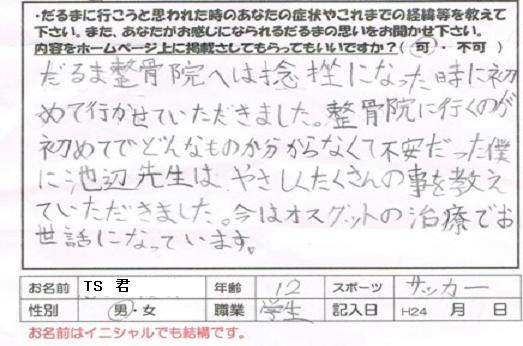 ・だるまに行こうと思われた時のあなたの症状やこれまでの経緯等を教えて
下さい。また、あなたがお感じになられるだるまの思いをお聞かせ下さい。
内容をホームページ上に掲載さしてもらってもいいですか？（可・不可）
だるま整骨院へは捻挫になった時に初
めて行かせていただきました。整骨院に行くのが
初めてでどんなものか分からなくて不安だった僕
に池辺先生は、やさしくたくさんの事を教え
ていただきました。今はオスグットの治療でお
世話になっています。
お名前 TS 君 年齢 12 スポーツ サッカー
性別 男・女 職業 学生 記入日 H24 月 日
お名前はイニシャルでも結構です。